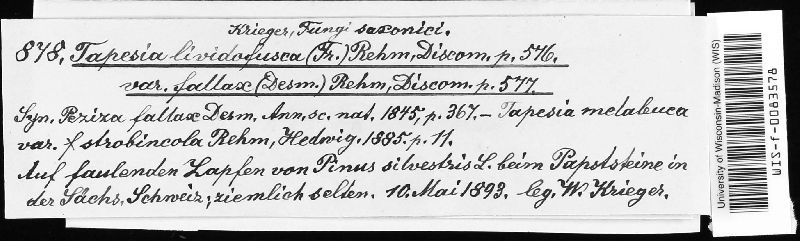 Krieger, Fungi saxonici.
878. Tapesia lividofusca (Fr.) Rehm, Discom. p. 576.
var. fallax (Desm.) Rehm, Discom. p. 577.
Syn. Peziza fallax Desm. Ann. sc. nat. 1845, p. 367. – Tapesia melaleuca
var. f strobincola Rehm, Hedwig. 1885. p. 11.
Auf faulenden Zapfen von Pinus silvestris L. beim Papststeine in
der Sächs. Schweiz; ziemlich selten. 10. Mai 1893. leg. W. Krieger.
University of Wisconsin-Madison (WIS)
WIS-f-0083578